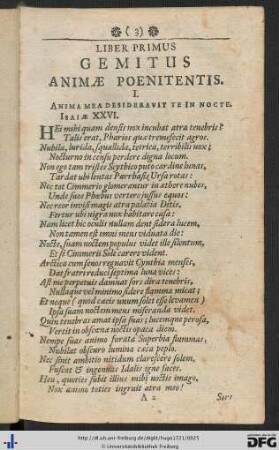 (3)
LIBER PRIMUS
GEMITUS
ANIMÆ POENITENTIS.
I.
ANIMA MEA DESIDERAVIT TE IN NOCTE.
ISAIÆ XXVI.
HEi mihi quam densis nox incubat atra tenebris!
Talis erat, Pharios quæ tremefecit agros.
Nubila, lurida, squallida, tetrica, terribilis nox;
Nocturno in censu perdere digna locum.
Non ego tam tristes Scythico puto cardine lunas,
Tardat ubi lentas Parrhasis Ursa rotas:
Nec tot Cimmerio glomerantur in æthere nubes,
Unde suos Phœbus vertere jussus equos:
Nec reor invisi magis atra palatia Ditis,
Fertur ubi nigra nox habitare casa:
Nam licet hic oculis nullam dent sidera lucem,
Non tamen est omni mens viduata die:
Nocte, suam noctem populus videt ille silentum,
Et se Cimmerii Sole carere vident.
Arctica cum senos regnavit Cynthia menses,
Das fratri reduci septima luna vices:
Ast me perpetuis damnat sors dira tenebris,
Nullaque vel minimo sidere flamma micat;
Et neque (quod cæcis unum solet esse levamen)
Ipsa suam noctem mens miseranda videt.
Quin tenebras amat ipsa suas; lucemque perosa,
Vertit in obscenæ noctis opaca diem.
Nempe suas animo furata Superbia flammas,
Nubilat obscuro lumina cæca peplo.
Nec sinit ambitio nitidum clarescere solem,
Fuscat & ingenuas Idalis igne faces.
Heu, quoties subit illius mihi noctis imago,
Nox animo toties ingruit atra meo!
A 2
http://dl.ub.uni-freiburg.de/diglit/hugo1721/0025
UNI
FREIBURG
Gefördert durch
DFG